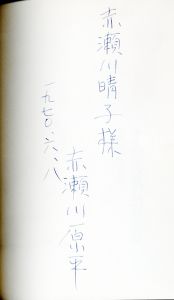 赤瀬川晴子様
一九七〇、六、八
赤瀬川原平